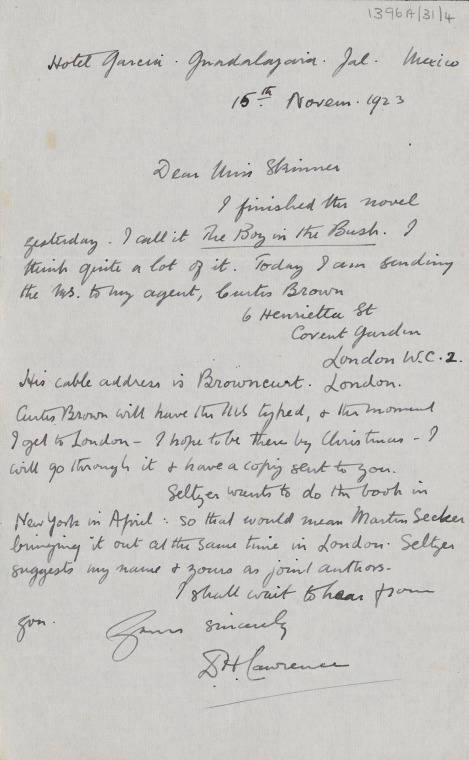 1396A/31/4
Hotel Garcia. Guadalajara. Jal. Mexico
15th Novem. 1923
Dear Miss Skinner
I finished the novel
yesterday. I call it The Boy in the Bush. I
think quite a lot of it. Today I am sending
the MS. to my agent, Curtis Brown
6 Henrietta St
Covent Garden
London W.C.2.
His cable address is Browncurt. London.
Curtis Brown will have the MS typed, & the moment
I get to London – I hope to be there by Christmas – I
will go through it & have a copy sent to you.
Seltzer wants to do the book in
New York in April: so that would mean Martin Secker
bringing it out at the same time in London. Seltzer
suggests my name & yours as joint authors.
I shall wait to hear from
you.
Yours sincerely
D.H. Lawrence